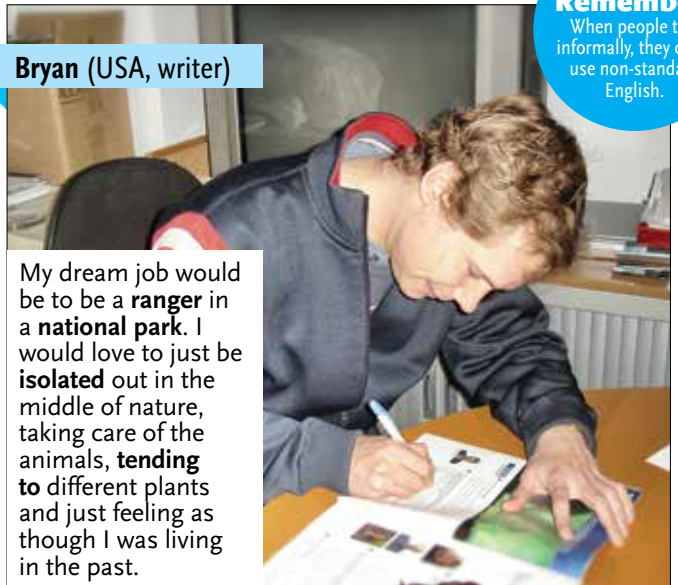 Bryan (USA, writer)
When people
informally, they
use
English.
My dream job would
be to be a ranger in
a national park. I
would love to just be
isolated out in the
middle of nature,
taking care of the
animals, tending
to different plants
and just feeling as
though I was living
in the past.